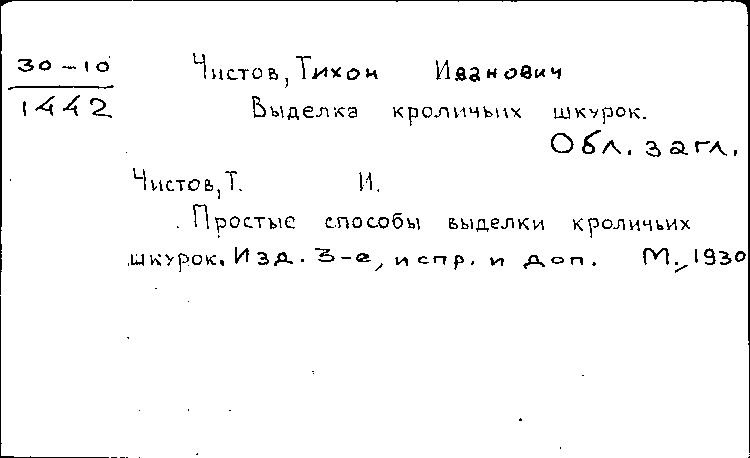 30-10
1442
Чистов, Тихон Иванович
Выделка кроличьих шкурок.
Обл. загл.
Чистов, Т. И.
Простые способы выделки кроличьих
шкурок. Изд. 3-е, испр. и доп. М., 1930